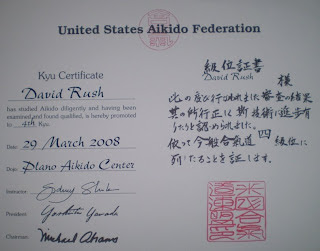 United States Aikido Federation
Kyu Certificate
David Rush
has studied Aikido diligently and having been
examined and found qualified, is hereby promoted
to 4th Kyu.
Date: 29 March 2008
Dojo: Plano Aikido Center
Instructor:
President: Yoshimitsu Yamada
Chairman: Michael Abrams
級位証書
David Rush 様
此の度び行はれました審査の結果
其の術行正しく斯道に進歩有
りたりと認められました。
依って今般合気道 四 級位に
列したることを証します。